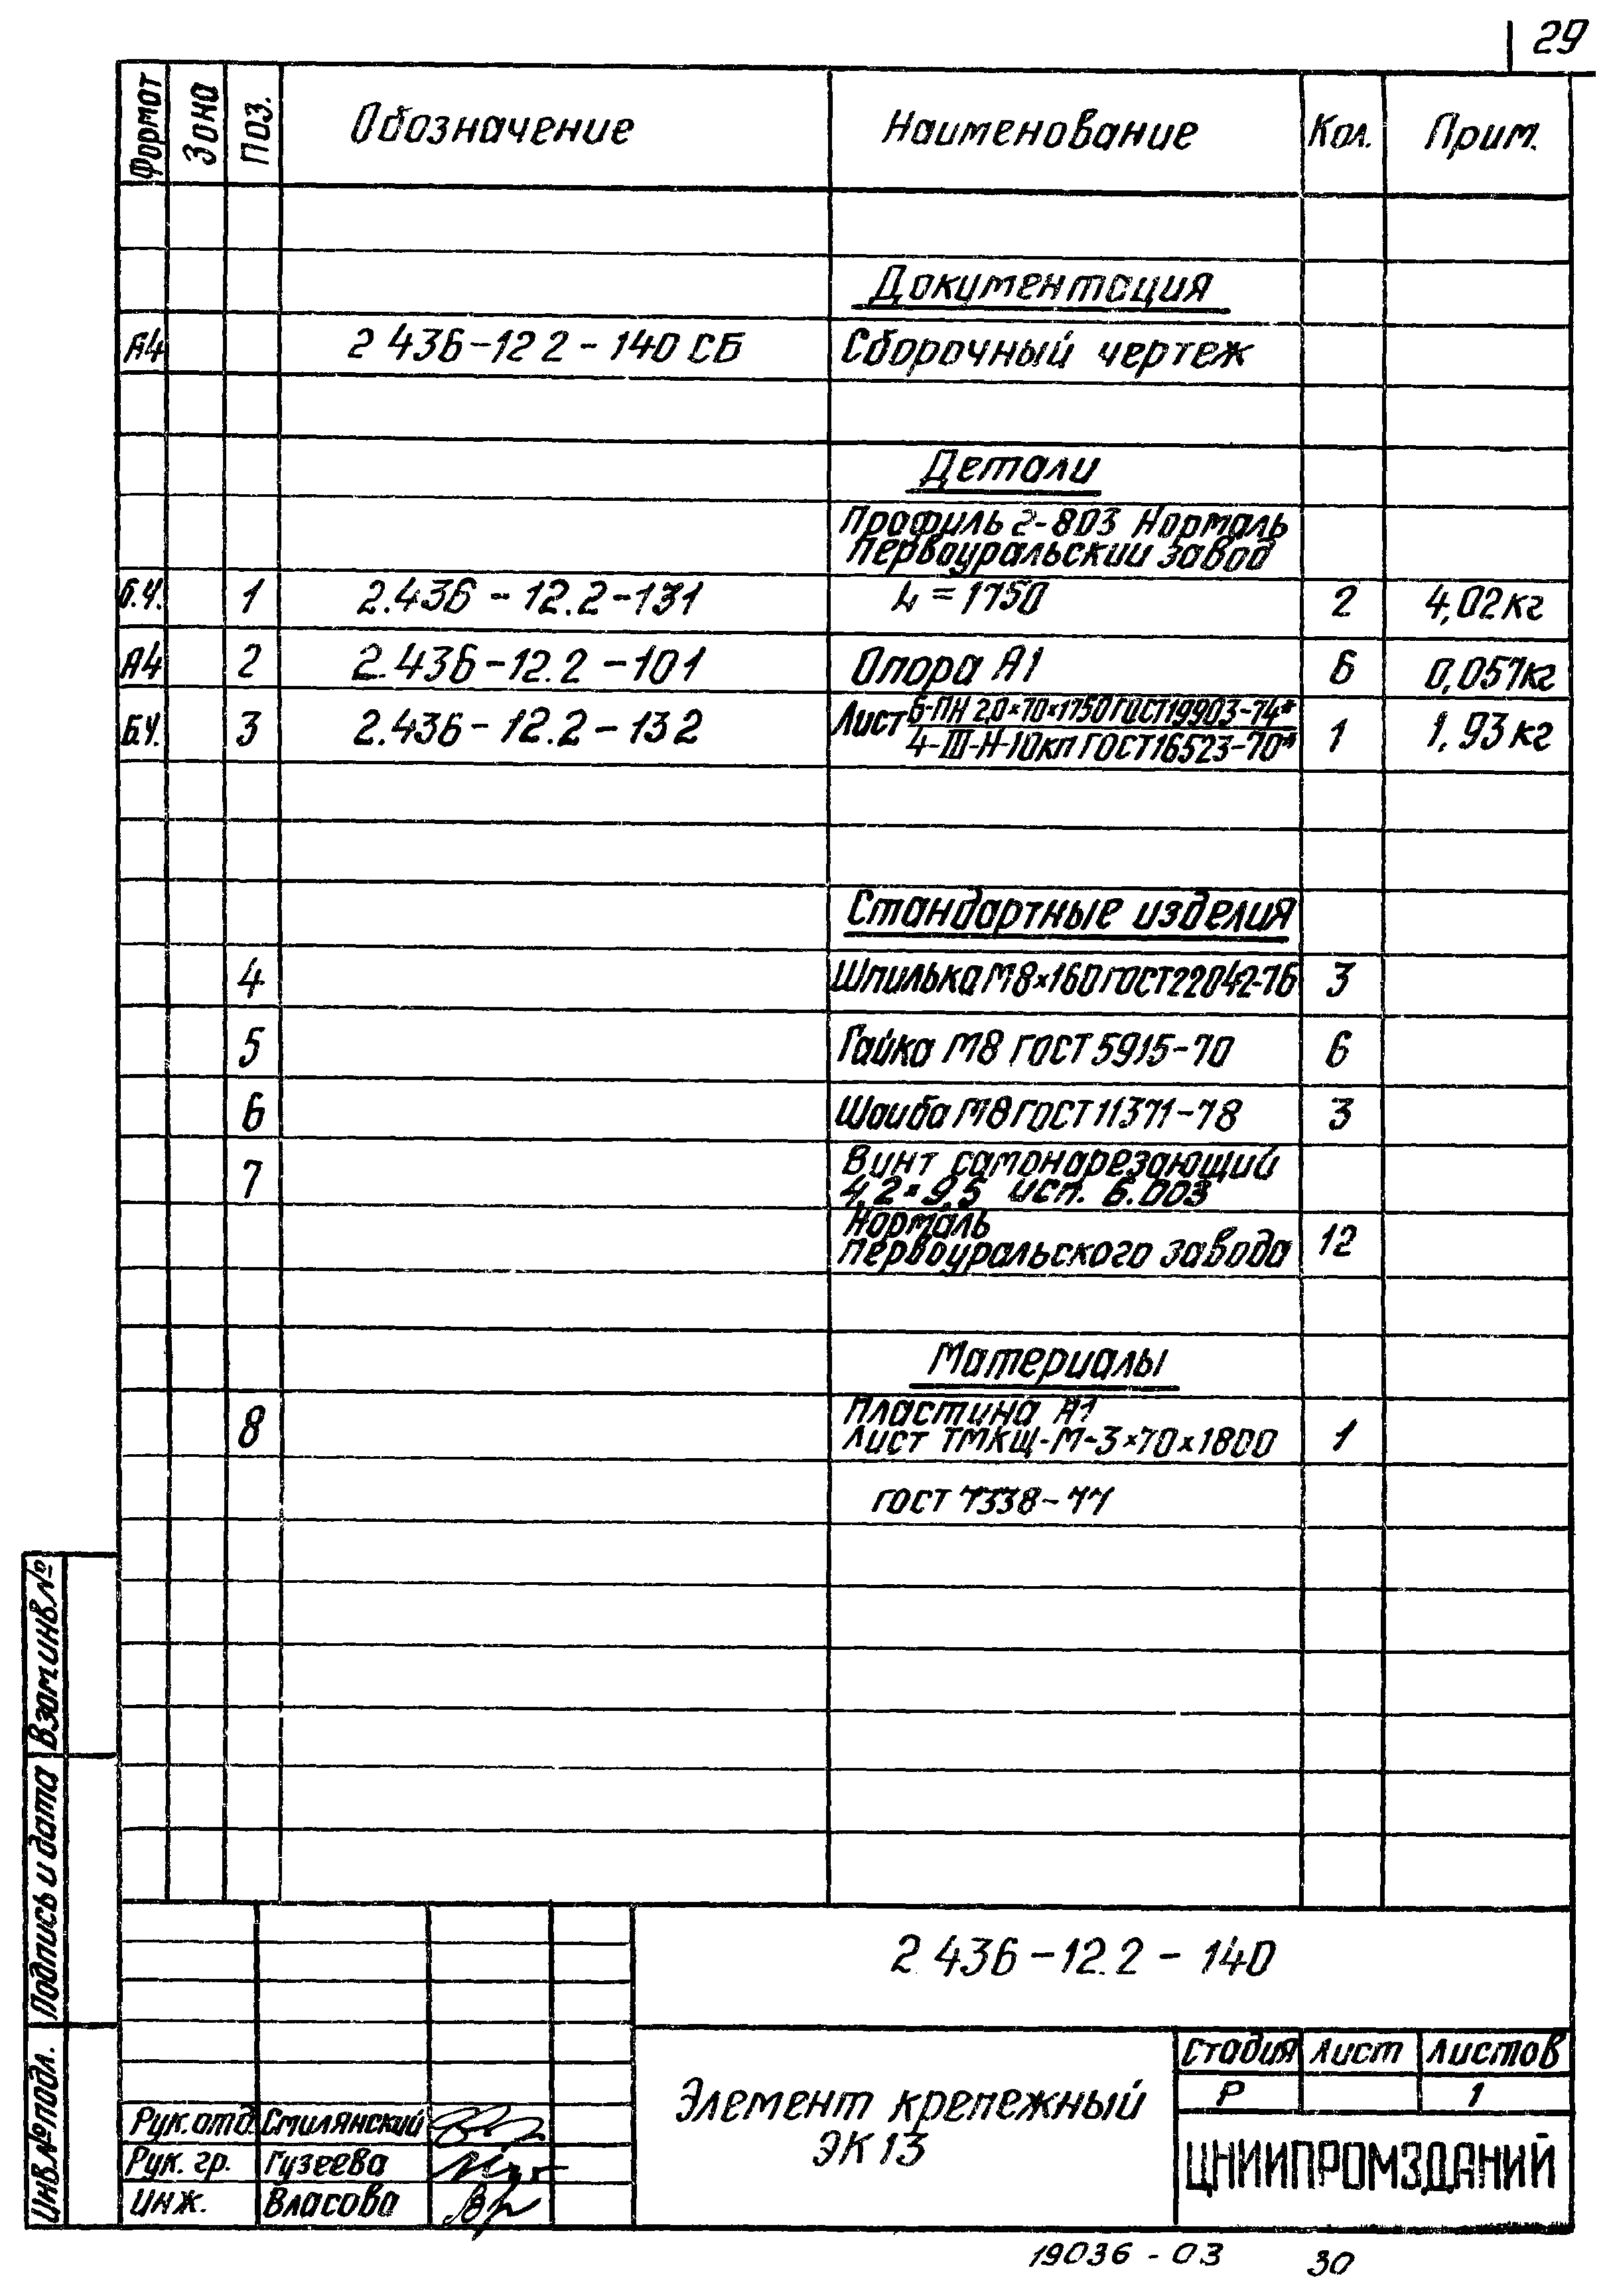 29
Формат Зона Поз. Обозначение Наименование Кол. Прим.
Документация
А4 2 436-12 2-140 СБ Сборочный чертеж
Детали
Профиль 2-803 Нормаль
Первоуральский завод
Б.Ч. 1 2.436-12.2-131 L=1750 2 4,02кг
А4 2 2.436-12.2-101 Опора А1 6 0,057кг
Б.Ч. 3 2.436-12.2-132 Лист Б-ПН 2,0×70×1750 ГОСТ 19903-74* 1 1,93кг
4-III-Н-10кп ГОСТ 16523-70*
Стандартные изделия
4 Шпилька М8×160 ГОСТ 22042-76 3
5 Гайка М8 ГОСТ 5915-70 6
6 Шайба М8 ГОСТ 11371-78 3
7 Винт самонарезающий
4,2×9,5 исп. 6.003
Нормаль
Первоуральского завода 12
Материалы
8 Пластина А1
Лист ТМКЩ-М-3×70×1800 1
ГОСТ 7338-77
Взам инв.№
Подпись и дата
Инв.№подл.
2 436-12.2-140
Элемент крепежный
ЭК13
Стадия Лист Листов
Р 1
ЦНИИПРОМЗДАНИЙ
Рук. отд. Смилянский
Рук. гр. Гузеева
Инж. Власова
19036-03 30